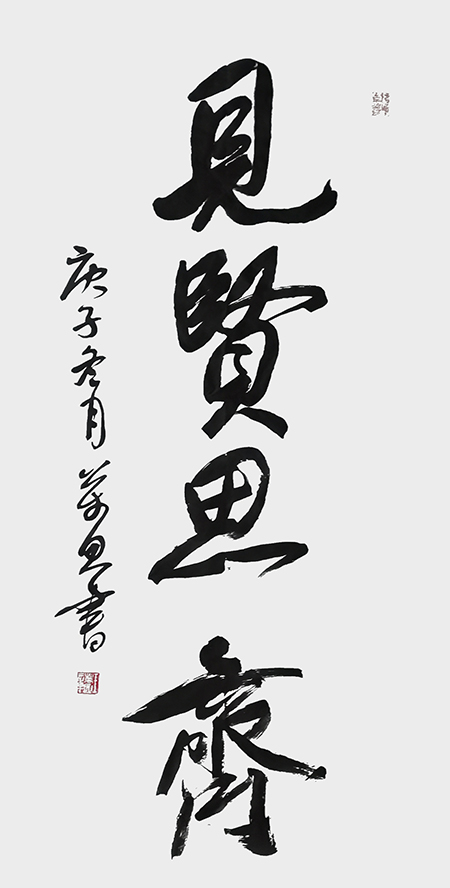 見賢思齊
庚子冬月萬里書